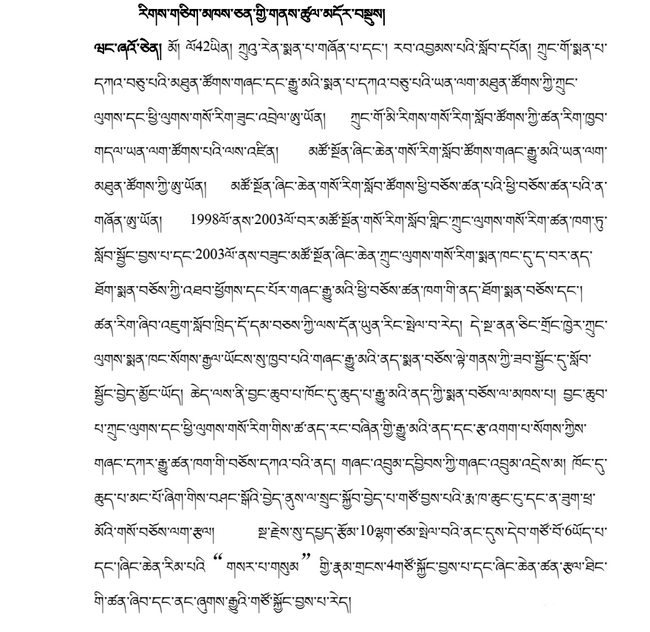 རིགས་གཅིག་མཁས་ཅན་གྱི་གནས་ཚུལ་མདོར་བསྡུས།
ཝང་ཞའོ་ཅེན། མོ། ལོ42ཡིན། ཀྲུའུ་རེན་སྨན་པ་གཞོན་པ་དང་། རབ་འབྱམས་པའི་སློབ་དཔོན། ཀྲུང་གོ་སྨན་པ་
དཀའ་བཅུ་པའི་མཐུན་ཚོགས་གཞང་དང་རྒྱུ་མའི་སྨན་པ་དཀའ་བཅུ་པའི་ཡན་ལག་མཐུན་ཚོགས་ཀྱི་ཀྲུང་
ལུགས་དང་ཕྱི་ལུགས་གསོ་རིག་ཟུང་འབྲེལ་ཨུ་ཡོན། ཀྲུང་གོ་མི་རིགས་གསོ་རིག་སློབ་ཚོགས་ཀྱི་ཚན་རིག་ཁྱབ་
གདལ་ཡན་ལག་ཚོགས་པའི་ལས་འཛིན། མཚོ་སྔོན་ཞིང་ཆེན་གསོ་རིག་སློབ་ཚོགས་གཞང་རྒྱུ་མའི་ཡན་ལག་
མཐུན་ཚོགས་ཀྱི་ཨུ་ཡོན། མཚོ་སྔོན་ཞིང་ཆེན་གསོ་རིག་སློབ་ཚོགས་ཕྱི་བཅོས་ཚན་པའི་ཕྱི་བཅོས་ཚན་པའི་ན་
གཞོན་ཨུ་ཡོན། 1998ལོ་ནས་2003ལོ་བར་མཚོ་སྔོན་གསོ་རིག་སློབ་གླིང་ཀྲུང་ལུགས་གསོ་རིག་ཚན་ཁག་ཏུ་
སློབ་སྦྱོང་བྱས་པ་དང་2003ལོ་ནས་བཟུང་མཚོ་སྔོན་ཞིང་ཆེན་ཀྲུང་ལུགས་གསོ་རིག་སྨན་ཁང་དུ་ད་བར་ནད་
ཐོག་སྨན་བཅོས་ཀྱི་འཐབ་ཕྱོགས་དང་པོར་གཞང་རྒྱུ་མའི་ཕྱི་བཅོས་ཚན་ཁག་གི་ནད་ཐོག་སྨན་བཅོས་དང་།
ཚན་རིག་ཞིབ་འཇུག་སློབ་ཁྲིད་དོ་དམ་བཅས་ཀྱི་ལས་དོན་ཡུན་རིང་སྤེལ་བ་རེད། དེ་སྔ་ནན་ཅིང་གྲོང་ཁྱེར་ཀྲུང་
ལུགས་སྨན་ཁང་སོགས་རྒྱལ་ཡོངས་སུ་ཁྱབ་པའི་གཞང་རྒྱུ་མའི་ནད་སྨན་བཅོས་ལྟེ་གནས་ཀྱི་ཟབ་སྦྱོང་དུ་སློབ་
སྦྱོང་བྱེད་མྱོང་ཡོད། ཆེད་ལས་ནི་བྱང་ཆུབ་པ་ཁོང་དུ་ཆུད་པ་རྒྱུ་མའི་ནད་ཀྱི་སྨན་བཅོས་ལ་མཁས་པ། བྱང་ཆུབ་
པ་ཀྲུང་ལུགས་དང་ཕྱི་ལུགས་གསོ་རིག་གིས་ཚ་ནད་རང་བཞིན་གྱི་རྒྱུ་མའི་ནད་དང་རྩ་འགག་པ་སོགས་ཀྱིས་
གཞང་དཀར་རྒྱུ་ཚན་ཁག་གི་བཅོས་དཀའ་བའི་ནད། གཞང་འབྲུམ་དབྱིབས་ཀྱི་གཞང་འབྲུམ་འདྲེས་མ། ཁོང་དུ་
ཆུད་པ་མང་པོ་ཞིག་གིས་བཤང་སྒོའི་བྱེད་ནུས་ལ་སྲུང་སྐྱོབ་བྱེད་པ་གཙོ་བྱས་པའི་རྨ་ཁ་ཆུང་ངུ་དང་ན་ཟུག་ཕྲ་
མོའི་གསོ་བཅོས་ལག་རྩལ། སྔ་རྗེས་སུ་དཔྱད་རྩོམ་10ལྷག་ཙམ་སྤེལ་བའི་ནང་དུས་དེབ་གཙོ་བོ་6ཡོད་པ་
དང་།ཞིང་ཆེན་རིམ་པའི་ “ གསར་པ་གསུམ ” གྱི་རྣམ་གྲངས་4གཙོ་སྐྱོང་བྱས་པ་དང་ཞིང་ཆེན་ཚན་རྩལ་ཐིང་
གི་ཚན་ཞིབ་དང་ནང་ཞུགས་རྒྱུའི་གཙོ་སྐྱོང་བྱས་པ་རེད།